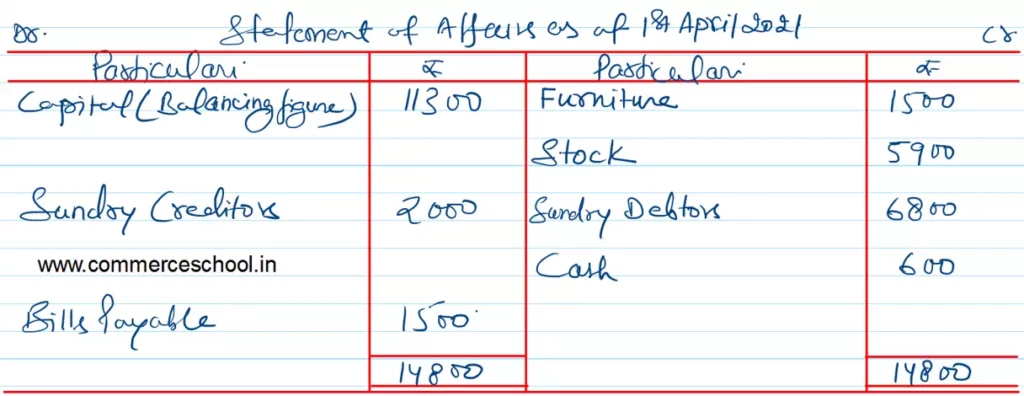 Dr. Statement of Affairs as at 1st April 2021 Cr
Particulars ₹ Particulars ₹
Capital (Balancing figure) 11300 Furniture 1500
Stock 5900
Sundry Creditors 2000 Sundry Debtors 6800
www.commerceschool.in Cash 600
Bills Payable 1500
14800 14800